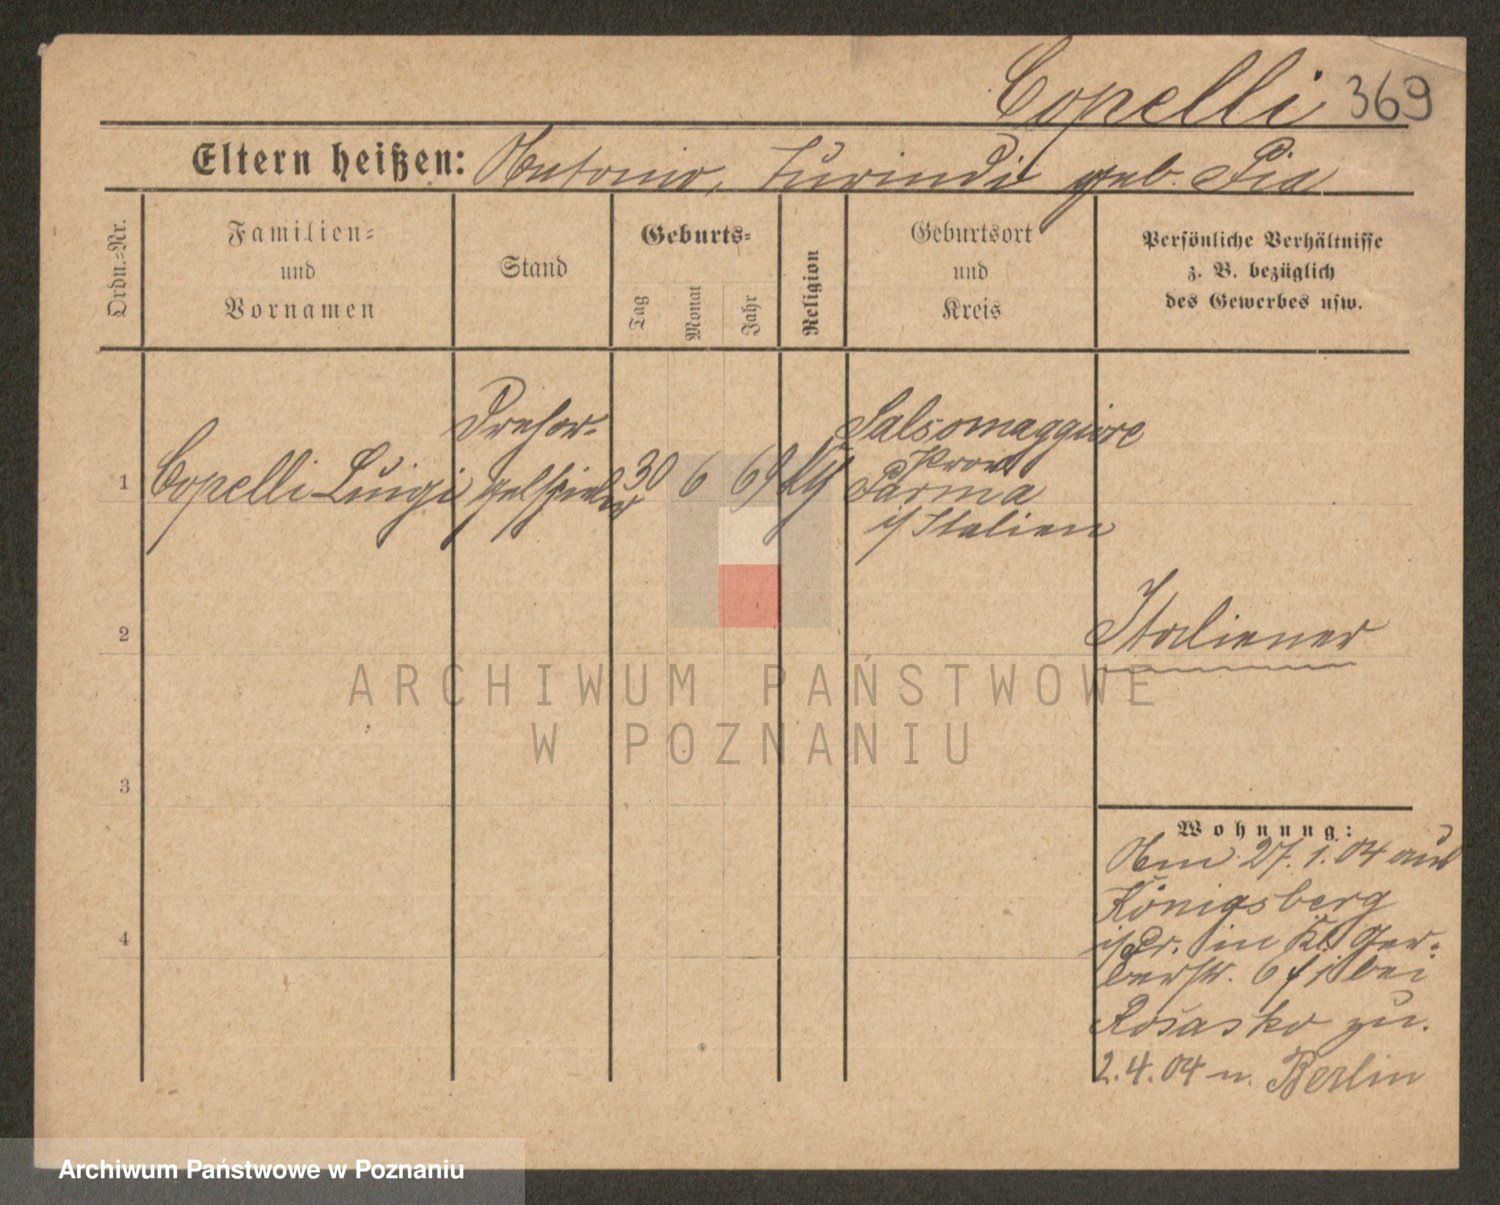 Copelli 369
Eltern heißen: Antonio, Lurindi geb. Pia
Ordn.-Nr.
Familien-
und
Vornamen
Stand
Geburts-
Tag
Monat
Jahr
Religion
Geburtsort
und
Kreis
Persönliche Verhältnisse
z. B. bezüglich
des Gewerbes usw.
1
Copelli Luigi
Drehor-
gelspieler
30 6 69
Salsomaggiore
Prov
Parma
i/Italien
Italiener
2
3
4
Wohnung:
Am 27.1.04 aus
Königsberg
i/Pr. in Kl. Ger-
berstr. 6 bei
Rosasko zu.
2.4.04 n. Berlin
ARCHIWUM PAŃSTWOWE
W POZNANIU
Archiwum Państwowe w Poznaniu